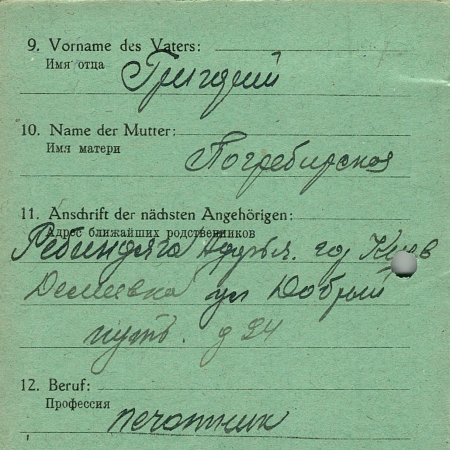 9. Vorname des Vaters:
Имя отца
Григорий
10. Name der Mutter:
Имя матери
Погребирская
11. Anschrift der nächsten Angehörigen:
Адрес ближайших родственников
Ребиндяго Дарья. гор Киев
Демиевка ул Добрый
путь. д 24
12. Beruf:
Профессия
печатник